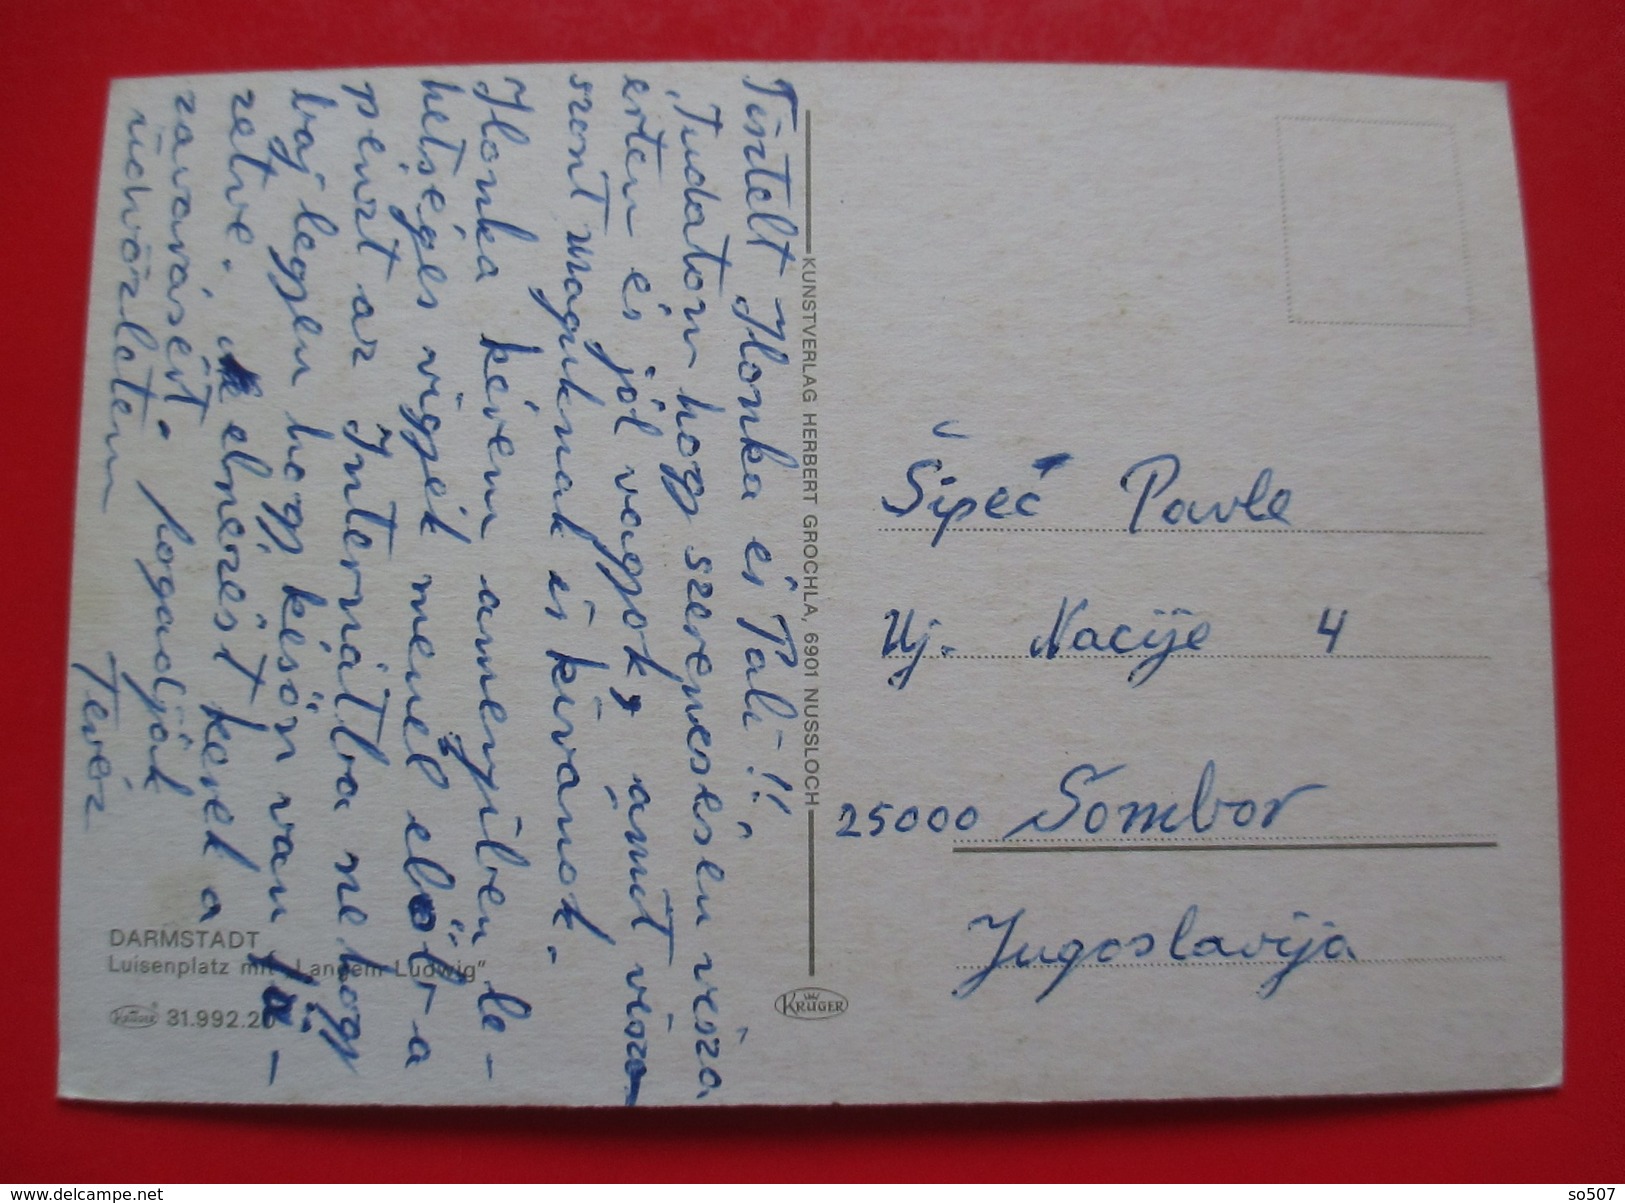 Tisztelt Ilonka és Pali-!!
Tudatom hogy szerencsésen vissza
értem és jól vagyok, ámit viszo-
szont maguknak is kivánok.
Ilonka kérem amenyiben le-
hetséges vigyék menél előbb a
pénzt az Internátba nehogy
baj legyen hogy késön van fi-
zetve. elnézést kérek a
zavarásért. fogadják
üdvözletem
Teréz
KUNSTVERLAG HERBERT GROCHLA, 6901 NUSSLOCH
KRÜGER
DARMSTADT
Luisenplatz mit „Langem Ludwig“
KRÜGER 31.992.20
Šipeč Pavle
Uj. Nacije 4
25000 Sombor
Jugoslavija
www.delcampe.net
so507